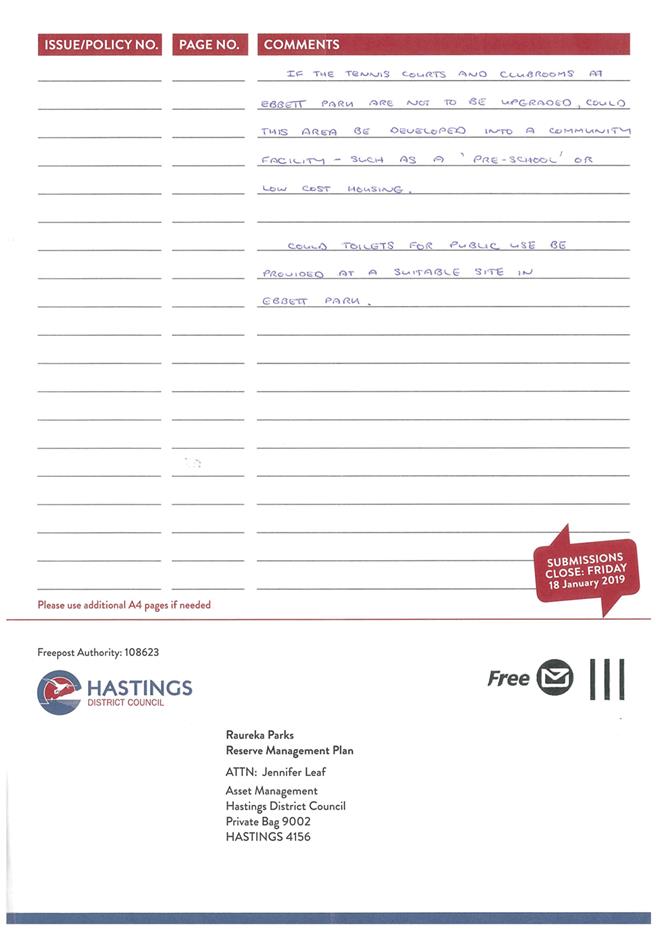 ISSUE/POLICY NO. PAGE NO. COMMENTS
IF THE TENNIS COURTS AND CLUBROOMS AT
EBBETT PARK ARE NOT TO BE UPGRADED, COULD
THIS AREA BE DEVELOPED INTO A COMMUNITY
FACILITY – SUCH AS A 'PRE-SCHOOL' OR
LOW COST HOUSING.
COULD TOILETS FOR PUBLIC USE BE
PROVIDED AT A SUITABLE SITE IN
EBBETT PARK.
SUBMISSIONS
CLOSE: FRIDAY
18 January 2019
Please use additional A4 pages if needed
Freepost Authority: 108623
HASTINGS
DISTRICT COUNCIL
Free
Raureka Parks
Reserve Management Plan
ATTN: Jennifer Leaf
Asset Management
Hastings District Council
Private Bag 9002
HASTINGS 4156